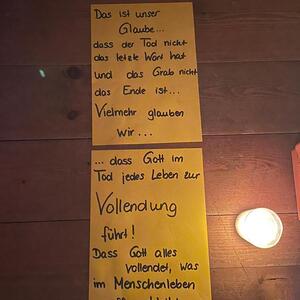 Das ist unser
Glaube...
dass der Tod nicht
das letzte Wort hat
und das Grab nicht
das Ende ist...
Vielmehr glauben
wir...
... dass Gott im
Tod jedes Leben zur
Vollendung
führt!
Dass Gott alles
vollendet, was
im Menschenleben